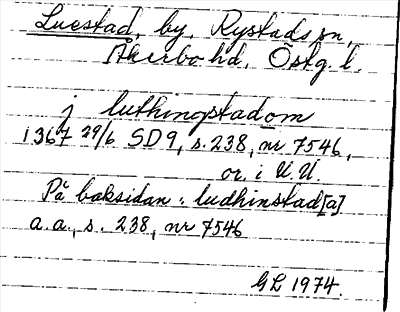 Luestad, by, Rystads sn,
Åkerbo hd, Östg. l.
j luthingstadom
1367 29/6 SD 9, s. 238, nr 7546,
or. i U.U.
På baksidan: ludhinstad[a]
a.a., s. 238, nr 7546
GL 1974.